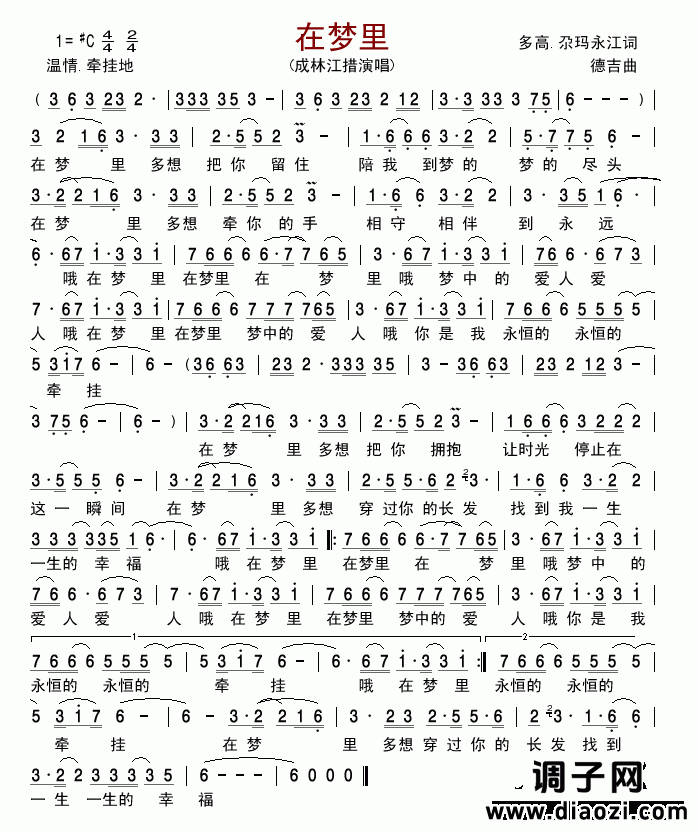 1=#C 4/4 2/4
在梦里
多高.尕玛永江词
温情.牵挂地
(成林江措演唱)
德吉曲
(3 6 3 23 2· | 333 35 3 - | 3 6 3 23 2 12 | 3·3 33 3 75 | 6 - - -)
3 2 16 3· 3 3 | 2·5 5 2 3 - | 1·6 6 6 3·2 2 | 5·7 75 6 6
在梦 里 多想 把你 留住 陪我 到梦的 梦的 尽头
3·2 2 1 6 3· 3 3 | 2·5 5 2 3 - | 1·6 6 3·2 2 | 3· 35 1 6·
在梦 里多想 牵你 的手 相守 相伴 到 永 远
6· 67 1·3 3 1 | 7 66 6 6·7 7 65 | 3· 67 1·3 3 1 | 76 6·6 73
哦在梦 里在梦里 在 梦 里哦 梦中的 爱人爱
7· 67 1·3 3 1 | 7 66 6 7 77 765 | 3· 67 1·3 3 1 | 7 66 6 5 55 5
人 哦在梦 里在梦里 梦中的 爱 人哦你是我 永恒的 永恒的
5 317 6 - | 6 - (36 63 | 23 2· 333 35 | 3 - 36 63 | 23 2 12 3 -
牵 挂
3 75 6 - | 6 -) | 3·2 216 3· 33 | 2·5 52 3 - | 1 66 6 3 22 2
在梦 里多想 把你 拥抱 让时光 停止在
3·5 55 6 - | 3·2 2 1 6 3· 33 | 2·5 5 6 5 2 3· | 1·6 6 3·2 2
这一瞬间 在梦 里多想 穿过你的长发 找到我一生
3 33 335 1 6· | 6· 67 1·3 31 ‖: 7 66 6 6·7 765 | 3· 67 1·3 31
一生的 幸 福 哦在梦里 在梦里 在 梦 里哦梦中的
76 6·6 73 | 7· 67 1·3 31 | 7 66 6 7 77 765 | 3· 67 1·3 31
爱人爱 人哦在梦里 在梦里 梦中的 爱 人哦你是我
1 2
7 66 6 5 55 5 | 5 317 6 - | 6· 67 1·3 31 :‖ 7 66 6 5 55 5
永恒的 永恒的 牵 挂 哦在梦里 永恒的 永恒的
5 317 6 - | 6 - 3·2 216 | 3· 33 2·5 5 6 | 5 2 3· 1·6 6
牵 挂 在梦 里多想穿过你的长发找到
3·2 2 3 33 335 | 6 - - - | 6 0 0 0 ‖
一生 一生的 幸 福
调子网
www.diaozi.com